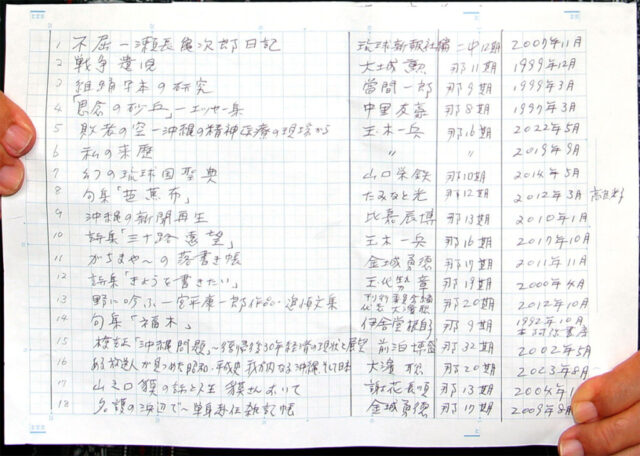 1 不屈一瀬長亀次郎日記 琉球新報社編 二中12期 2007年11月
2 戦争遺児 大城勲 那11期 1999年12月
3 組踊写本の研究 當間一郎 那9期 1999年3月
4 「思念の砂丘」一エッセー集 中里友豪 那8期 1997年3月
5 敗者の空一沖縄の精神医療の現場から 玉木一兵 那16期 2022年5月
6 私の来歴 〃 〃 2019年9月
7 幻の琉球国聖典 山口栄鉄 那10期 2014年5月
8 句集「芭蕉布」 たみなと光 那12期 2012年3月
9 沖縄の新聞再生 比嘉辰博 那13期 2010年1月
10 詩集「三十路遠望」 玉木一兵 那16期 2017年10月
11 がちまや〜の落書き帳 金城勇徳 那17期 2011年11月
12 詩集「きょうを書きたい」 玉代勢章 那19期 2000年4月
13 野に吟ふ一宮平康一郎作品・追悼文集 那20期 2012年10月
14 句集「福木」 伊舎堂根自 那9期 1992年10月
15 検証「沖縄問題」〜復帰後30年経済の現状と展望 前泊博盛 那32期 2002年5月
16 ある放送人が見つめた昭和、平成史 我が内なる沖縄そして日本 大濱聡 那20期 2003年8月〜
17 山之口貘の詩と人生 貘さんおいで 謝花長順 那13期 2004年1月
18 名護の浜辺で〜単身赴任雑記帳 金城勇徳 那17期 2009年8月